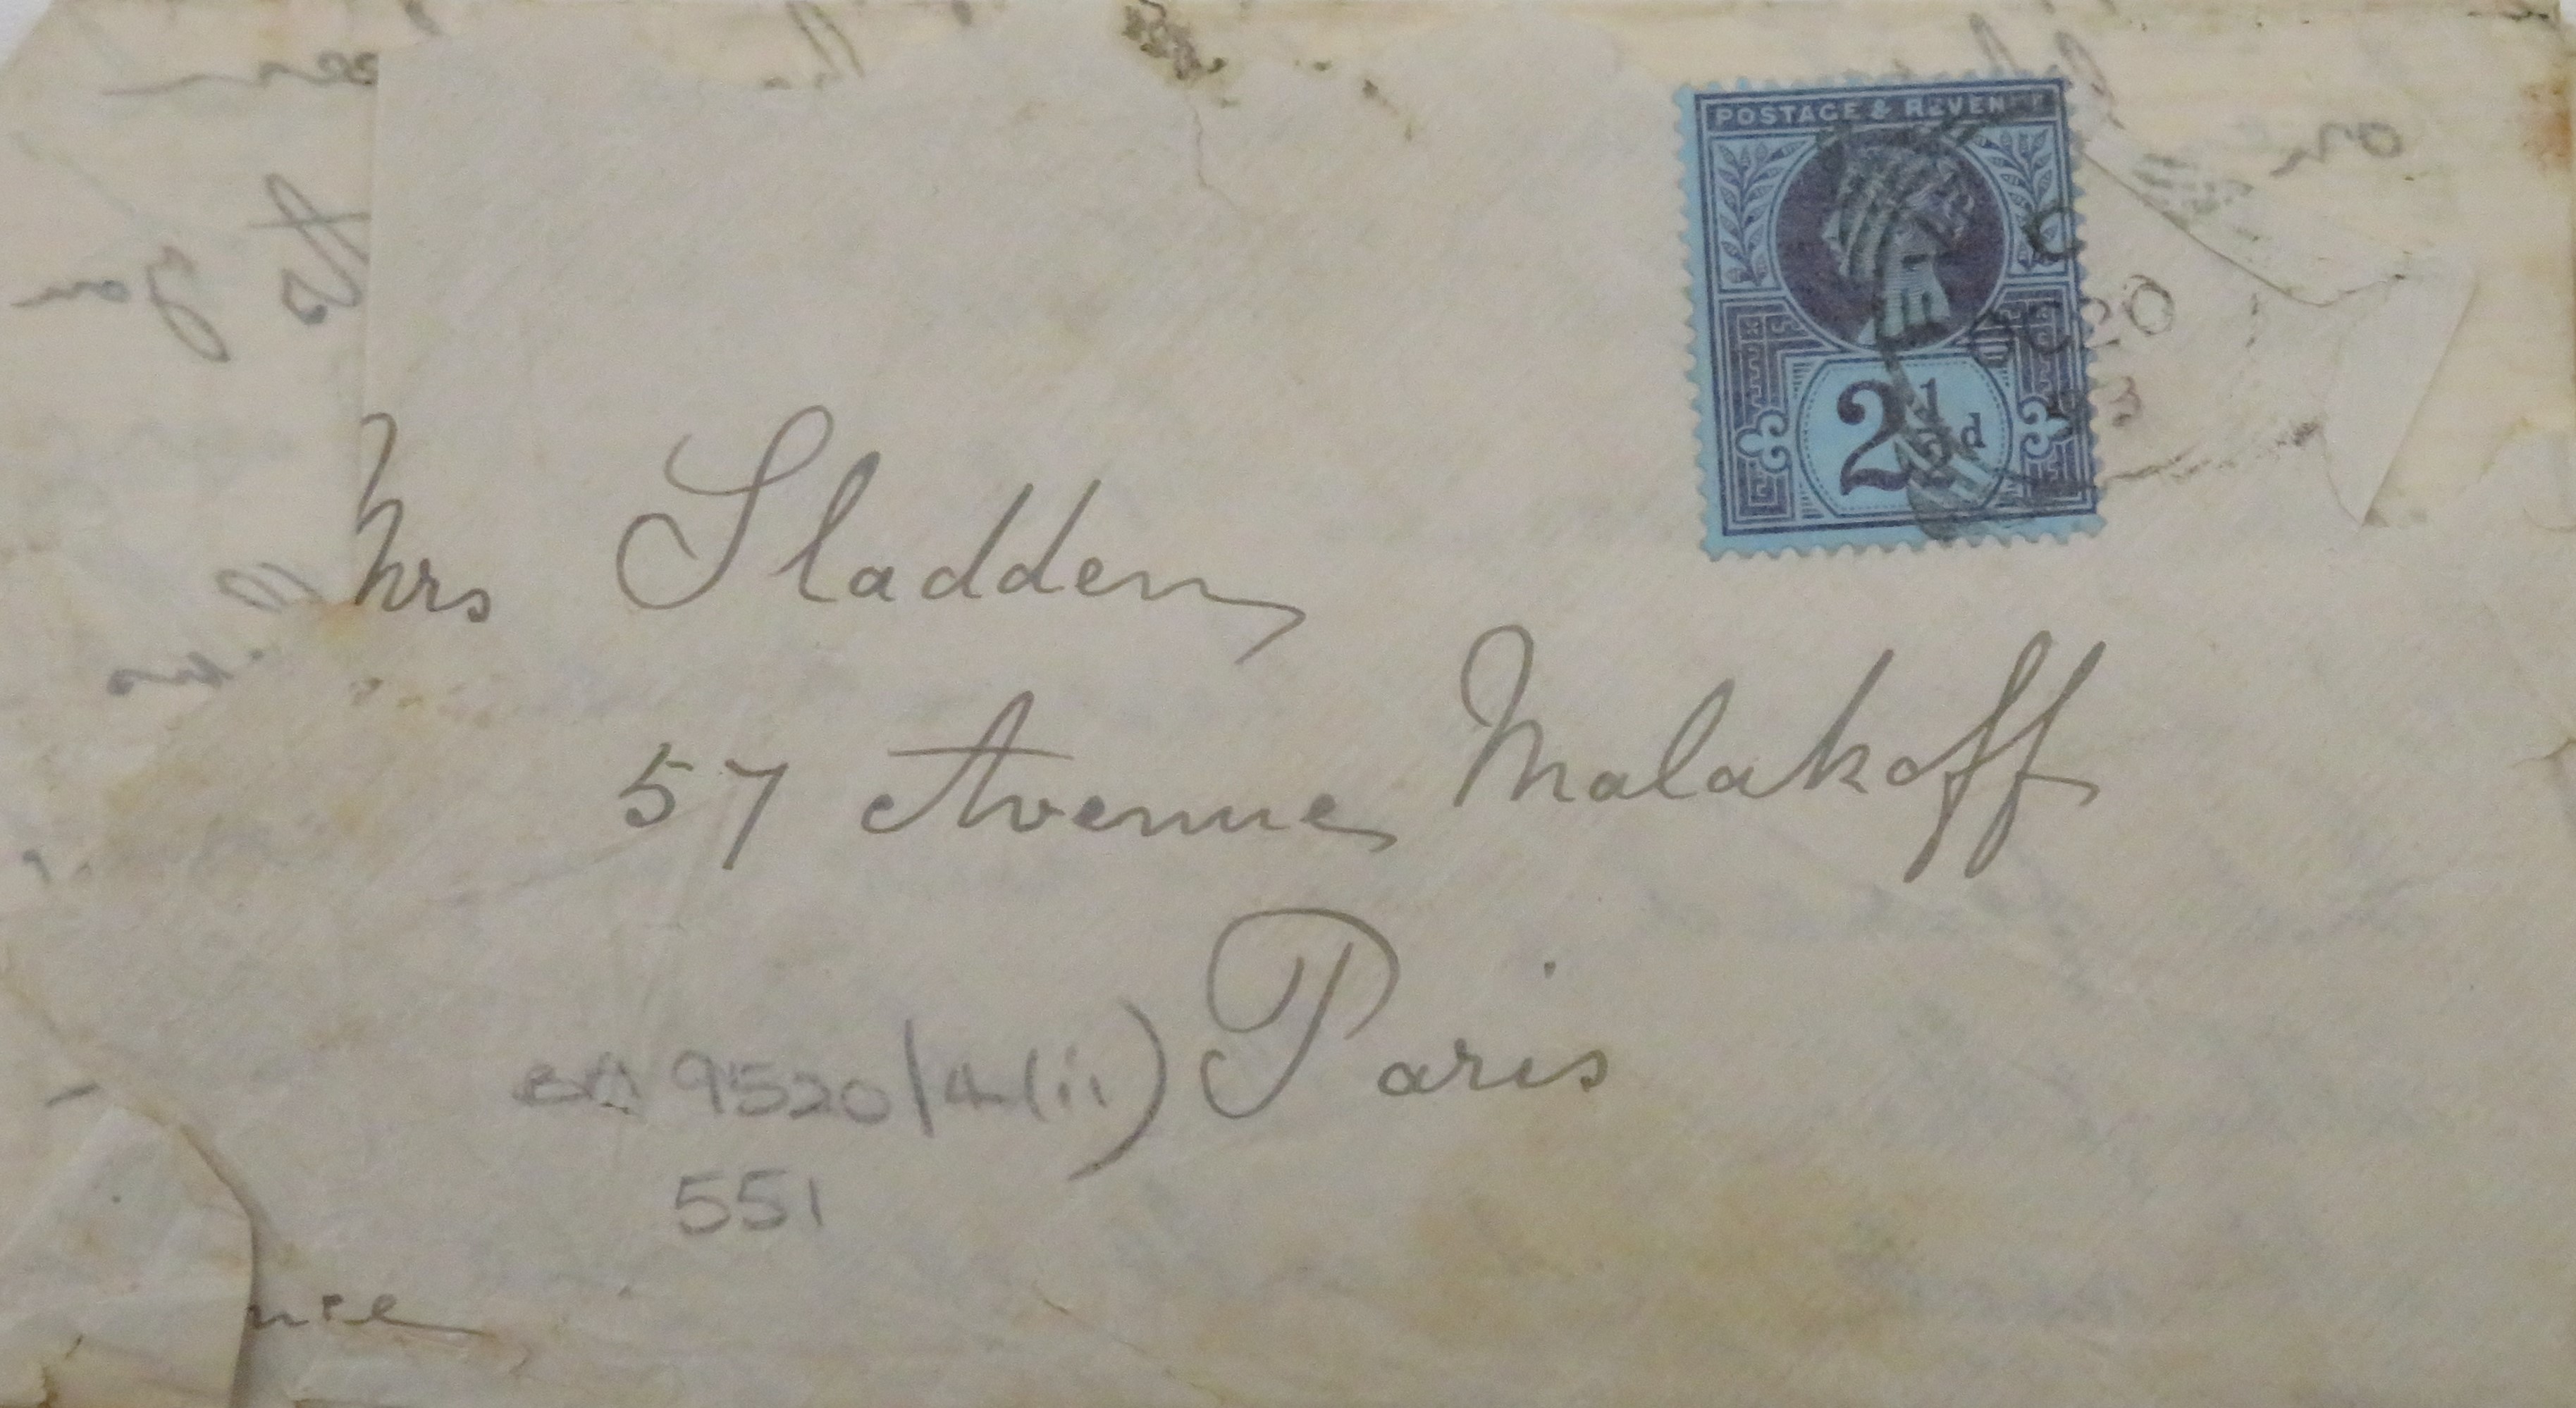 POSTAGE & REVENUE
2½d
Mrs Sladden
57 Avenue Malakoff
Paris
BA 9520/4(ii)
551
nce